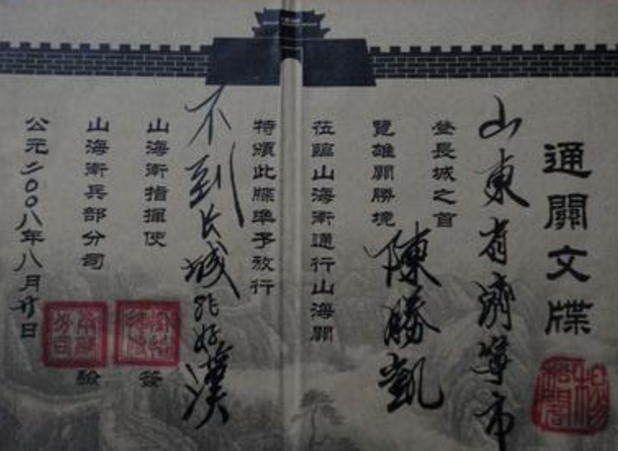 通關文牒
山東省濟寧市
登長城之首
覽雄關勝境
陳勝凱
莅臨山海衛通行山海關
特頒此牒準予放行
不到长城非好漢
山海衛指揮使
簽
山海衛兵部分司
驗
公元二〇〇八年八月廿日